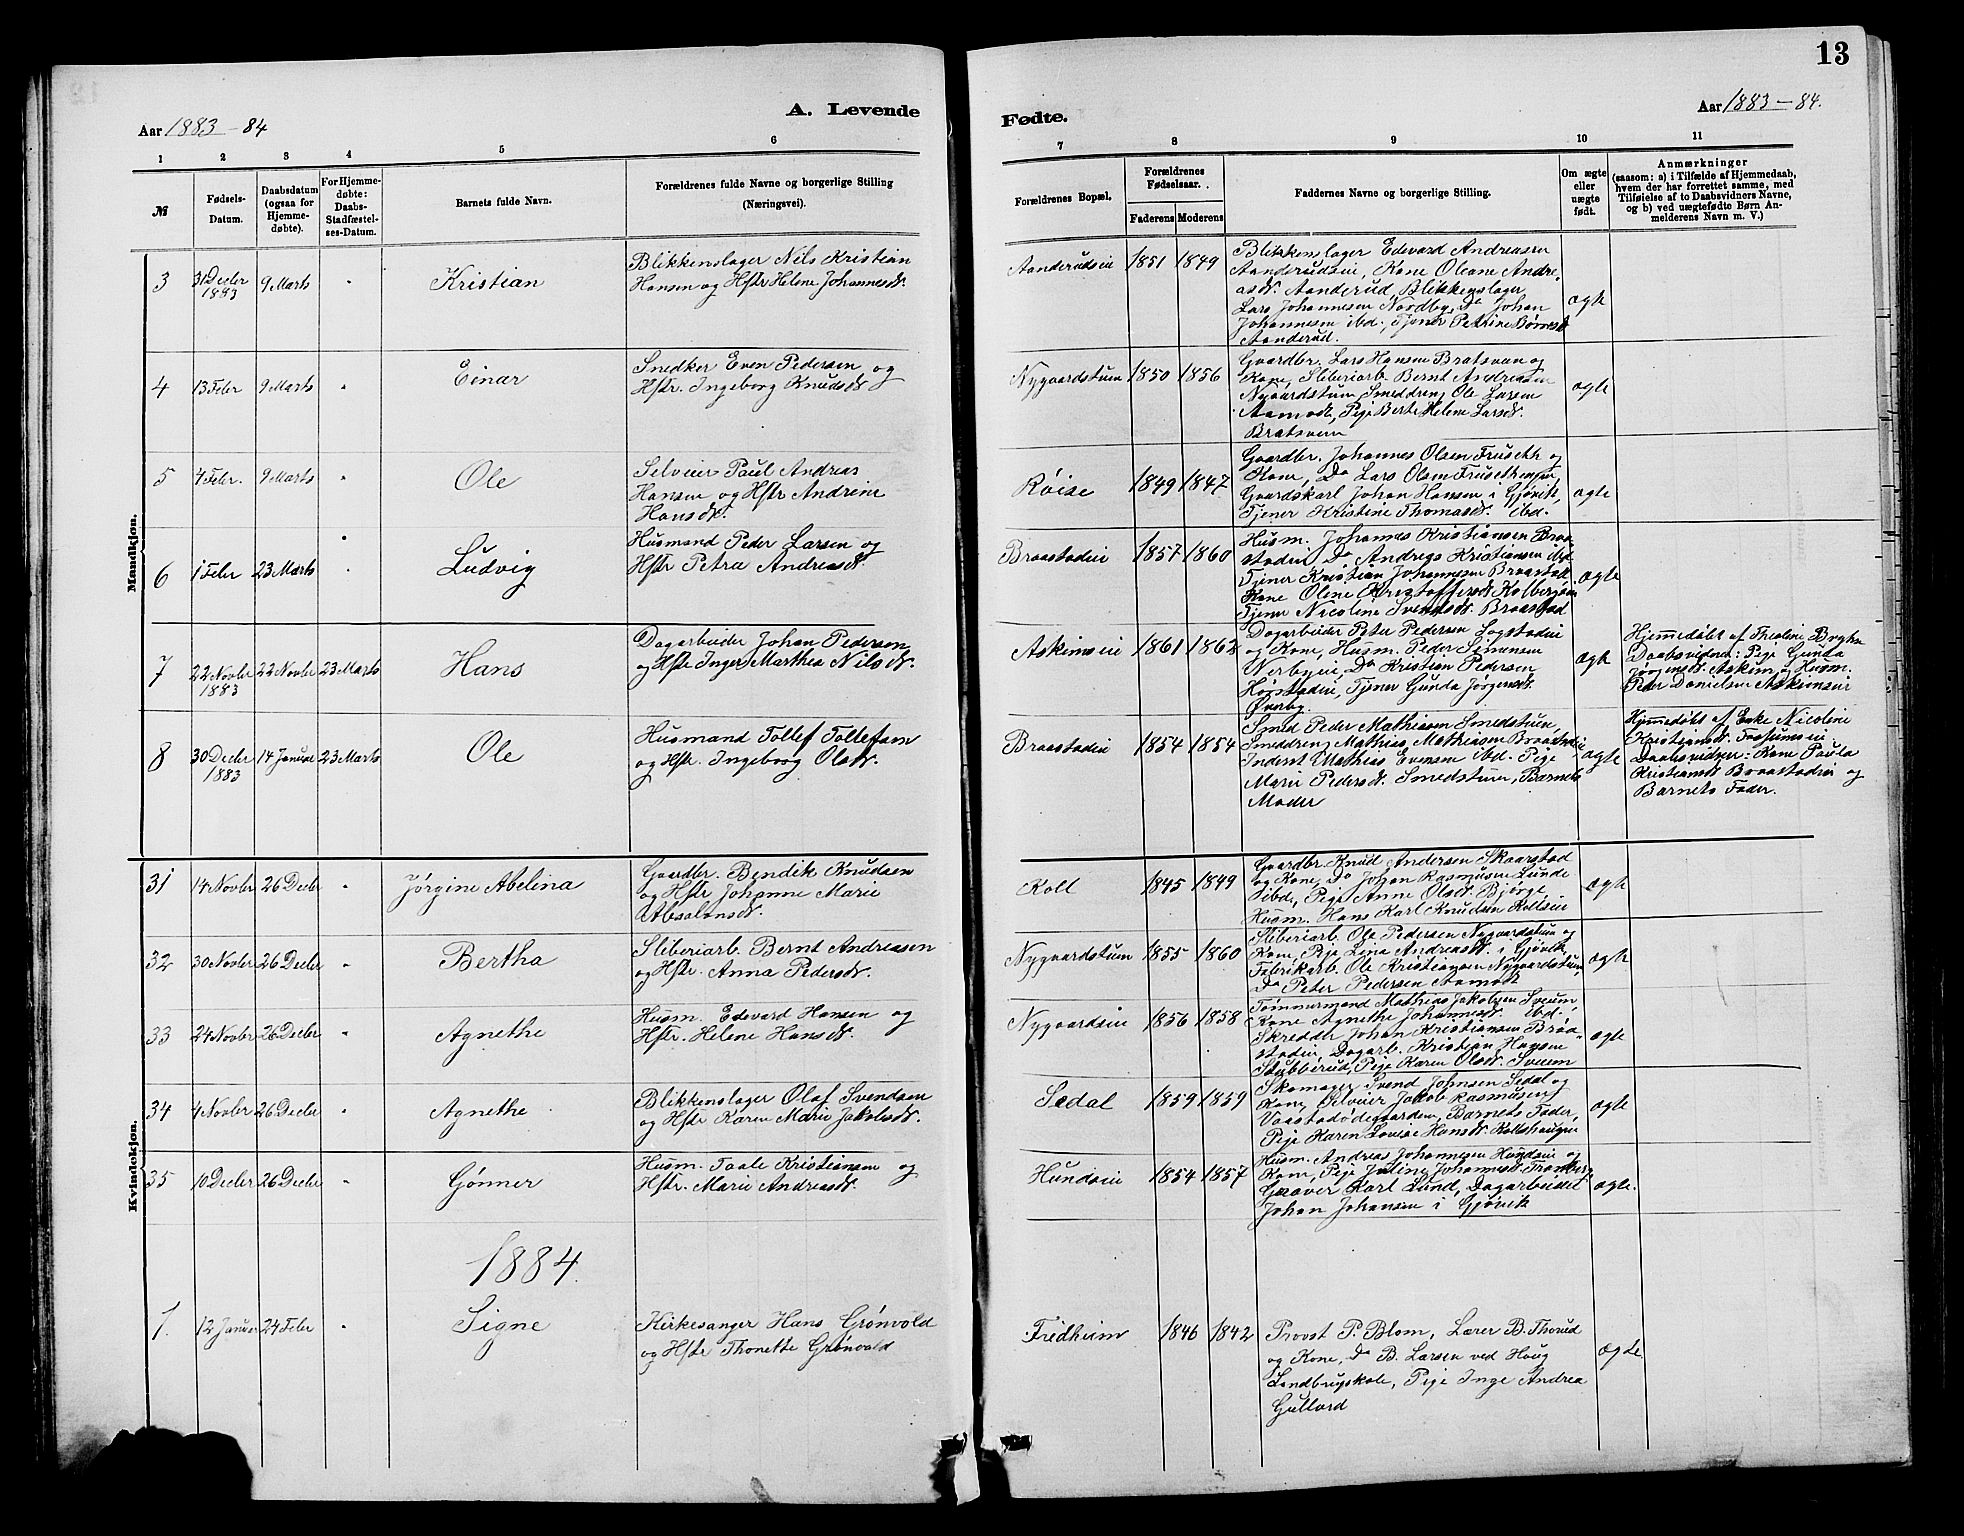 13
Aar 1883-84
A. Levende
Fødte.
Aar 1883-84.
1 2 3 4 5 6 7 8 9 10 11
№
Fødsels-
Datum.
Daabsdatum
(ogsaa for
Hjemme-
døbte).
For Hjemme-
døbte:
Daabs-
Stadfæstel-
ses-Datum.
Barnets fulde Navn.
Forældrenes fulde Navne og borgerlige Stilling
(Næringsvei).
Forældrenes Bopæl.
Forældrenes
Fødselsaar.
Faderens Moderens
Faddernes Navne og borgerlige Stilling.
Om ægte
eller
uægte
født.
Anmærkninger
(saasom: a) i Tilfælde af Hjemmedaab,
hvem der har forrettet samme, med
Tilføielse af to Daabsvidners Navne,
og b) ved uægtefødte Børn An-
melderens Navn m. V.)
Mandkjøn.
3
31 Decbr
1883
9 Marts
"
Kristian
Blikkenslager Nils Kristian
Hansen og Hstr Helene Johannesdr.
Aanderudseie 1851 1849
Blikkenslager Edevard Andreassen
Aanderudseie, Kone Oleane Andre-
asdr. Aanderud, Blikkenslager
Lars Johannesen Nordby, Do Johan
Johannesen ibd., Tjener Petrine Børresdr
Aanderud.
ægte
4
13 Febr
9 Marts
"
Einar
Snedker Even Pedersen og
Hstr. Ingeborg Knudsdr
Nygaardstuen 1850 1856
Gaardbr. Lars Hansen Bratsveen og
Kone, Sliberiarb. Bernt Andreasen
Nygaardstuen, Smeddreng Ole Larsen
Aamodt, Pige Berte Helene Larsdr.
Bratsveen
ægte
5
4 Febr.
9 Marts
"
Ole
Selveier Paul Andreas
Hansen og Hstr Andrine
Hansdr.
Røise 1849 1847
Gaardbr. Johannes Olsen Fruseth og
Kone, Do Lars Olsen Frusethengen,
Gaardskarl Johan Hansen i Gjøvik,
Tjener Kristine Thomasdr. ibd.
ægte
6
1 Febr
23 Marts
"
Ludvig
Husmand Peder Larsen og
Hstr Petra Andreasdr.
Braastadeie 1857 1860
Husm. Johannes Kristiansen Braa-
stadeie, Do Andreas Kristiansen ibd.
Tjener Kristian Johannesen Braastad.
Kone Olene Kristoffersdr Kolbergseie
Tjener Nicoline Svendsdr. Braastad
ægte
7
22 Novbr
1883
22 Novbr
23 Marts
Hans
Dagarbeider Johan Pedersen
og Hstr Inger Marthea Nilsdr.
Askimseie 1861 1862
Dagarbeider Peter Pedersen Løgstadeie
og Kone, Husm. Peder Simensen
Nerbyeie, Do Kristian Pedersen
Hørstadeie, Tjener Gunda Jørgensdr.
Øverby.
ægte
Hjemmedøbt af Theoline Bryhn
Daabsvidner: Pige Gunda
Jørgensdr. Askim og Husm.
Peder Danielsen Askimseie
8
30 Decbr
1883
14 Januar
23 Marts
Ole
Husmand Tollef Tollefsen
og Hstr. Ingeborg Olsdr.
Braastadeie 1854 1854
Smed Peder Mathiasen Smedstuen
Smeddreng Mathias Mathiasen Braastadeie
Inderst Mathias Evensen ibd. Pige
Marie Pedersdr. Smedstuen, Barnets
Moder
ægte
Hjemmedøbt af Enke Nicoline
Kristiansdr. Fossumseie.
Daabsvidner: Kone Paula
Kristiansdr Braastadeie og
Barnets Fader.
Kvindekjøn.
31
14 Novbr
26 Decbr
"
Jørgine Abelina
Gaardbr. Bendik Knudsen
og Hstr Johanne Marie
Absalonsdr.
Roll 1845 1849
Gaardbr Knud Andersen Skaarstad
og Kone, Do Johan Rasmusen Lunde
ibd., Pige Anne Olsdr. Bjørge
Husm. Hans Karl Knudsen Rollseie
ægte
32
30 Novbr
26 Decbr
"
Bertha
Sliberiarb. Bernt Andreasen
og Hstr. Anna Pedersdr.
Nygaardstuen 1855 1860
Sliberiarb. Ole Pedersen Nygaardstuen og
Kone, Pige Lina Andreasdr. i Gjøvik,
Fabrikarb. Ole Kristiansen Nygaardstuen,
Do Peter Pedersen Aamodt
ægte
33
24 Novbr
26 Decbr
"
Agnethe
Husm. Edevard Hansen og
Hstr. Helene Hansdr.
Nygaardseie 1856 1858
Tømmermand Mathias Jakobsen Sveum,
Kone Agnethe Johannesdr. ibd.,
Skredder Johan Kristiansen Braa-
stadeie, Dagarb. Kristian Hansen
Stubberud, Pige Karen Olsdr. Sveum
ægte
34
4 Novbr
26 Decbr
"
Agnethe
Blikkenslager Olaf Svendsen
og Hstr Karen Marie Jakobsdr.
Sedal 1859 1859
Skomager Svend Johnsen Sedal og
Kone, Selveier Jakob Rasmusen
Vaastadødegaarden, Barnets Fader,
Pige Karen Lovise Hansdr. Rollshaugen
ægte
35
10 Decbr
26 Decbr
"
Gønner
Husm. Taale Kristiansen og
Hstr. Marie Andreasdr.
Hundseie 1854 1857
Husm. Andreas Johannesen Hundseie og
Kone, Pige Juline Johannesdr. Tranberg,
Graver Karl Lund, Dagarbeider
Johan Johansen i Gjøvik
ægte.
1884.
1.
12 Januar
24 Febr
"
Signe
Kirkesanger Hans Grønvold
og Hstr Thonette Grønvold
Fredheim 1846 1842
Provst P. Blom, Lærer B. Thorud
og Kone, Do B. Larsen ved Houg
Landbrugskole, Pige Inge Andrea
Gullord
ægte.